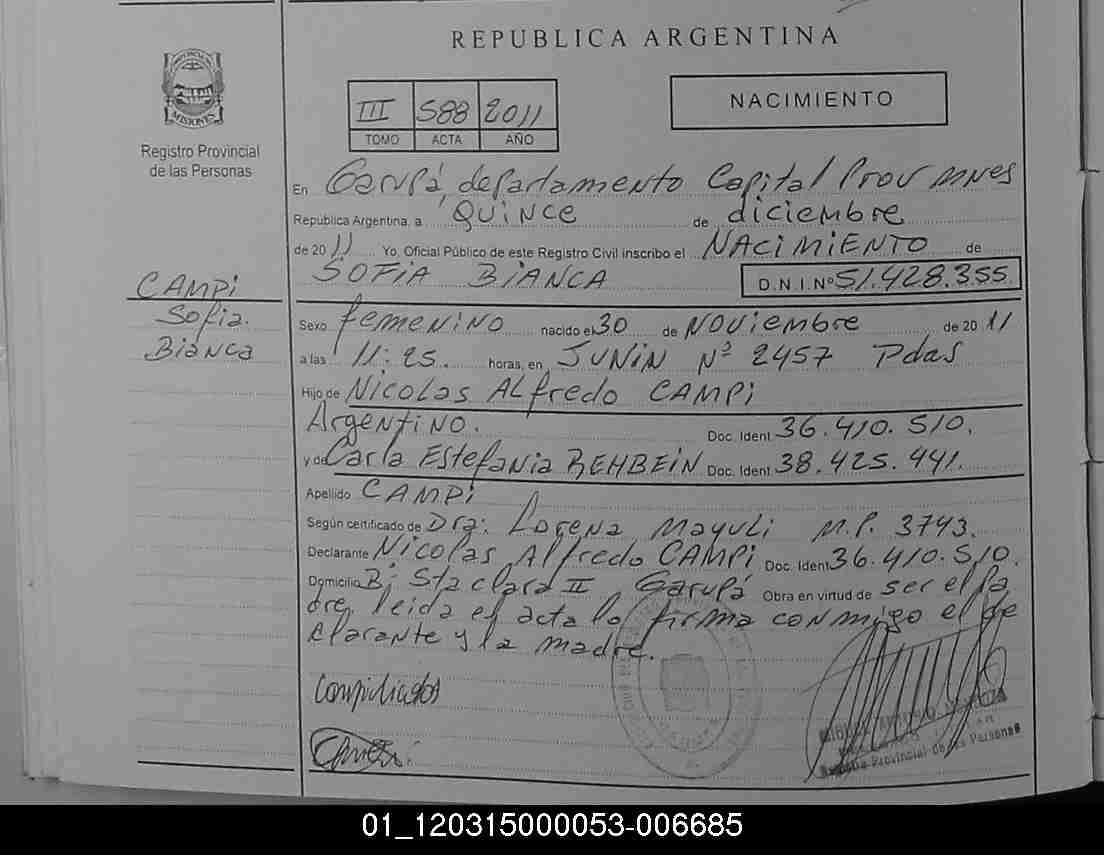 REPUBLICA ARGENTINA
PROVINCIA DE
MISIONES
Registro Provincial
de las Personas
III 588 2011
TOMO ACTA AÑO
NACIMIENTO
En Garupá, departamento Capital Prov Mnes
República Argentina, a QUINCE de diciembre
de 2011 Yo, Oficial Público de este Registro Civil inscribo el NACIMIENTO de
SOFIA BIANCA D.N.I.Nº 51.428.355.
CAMPI
Sofia
Bianca
Sexo femenino nacido el 30 de Noviembre de 2011
a las 11:25. horas, en JUNIN Nº 2457 Pdas
Hijo de Nicolas Alfredo CAMPI
Argentino. Doc. Ident. 36.410.510.
y de Carla Estefania REHBEIN Doc. Ident. 38.425.441.
Apellido CAMPI
Según certificado de Dra: Lorena Mayuli M.P. 3743.
Declarante Nicolas Alfredo CAMPI Doc. Ident. 36.410.510.
Domicilio Bº Sta clara II Garupá Obra en virtud de ser el pa
dre, leida el acta la firma conmigo el de
clarante y la madre.
Registro Provincial de las Personas
01_120315000053-006685